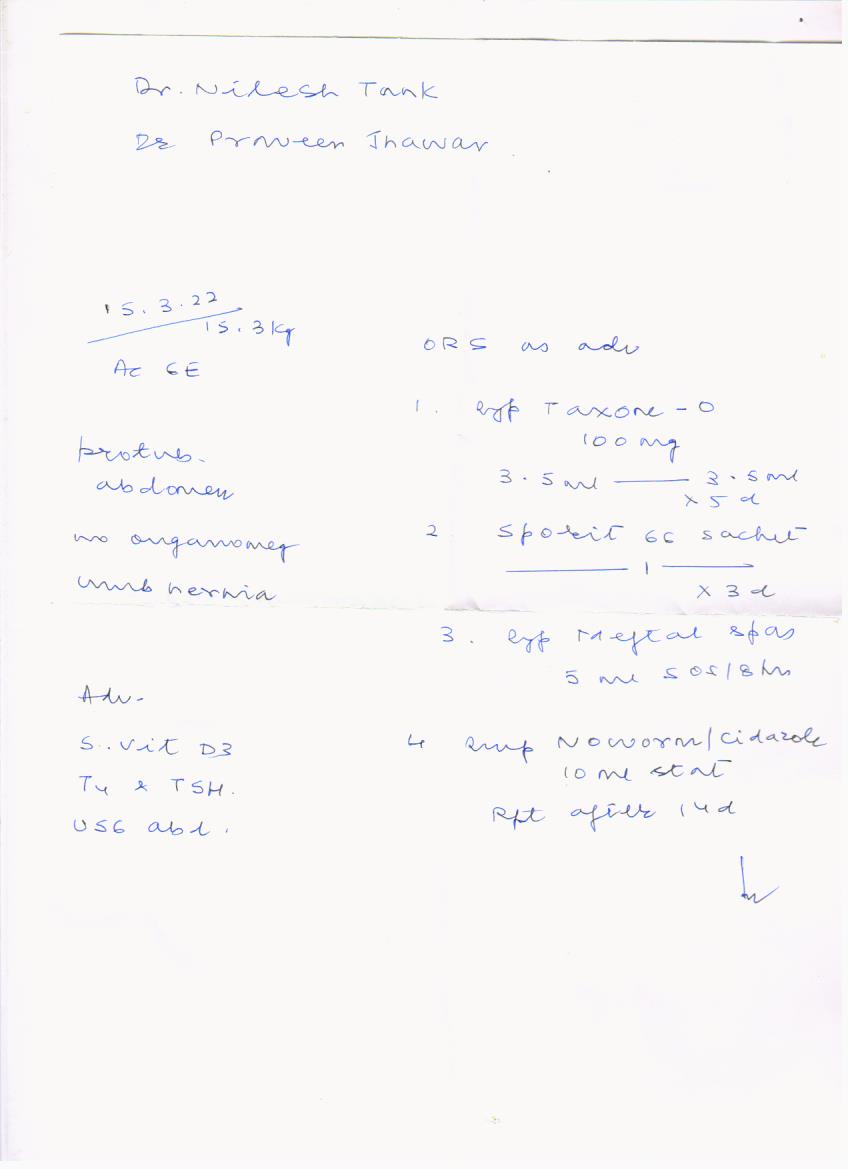 Dr. Nilesh Tank
Dr Praveen Jhawar
15.3.22
15.3kg
Ac GE
protub.
abdomen
no organomeg
umb hernia
Adv-
S. Vit D3
T4 & TSH.
USG abd.
ORS as adv
1. Syp Taxone-O
100 mg
3.5 ml —— 3.5 ml
x 5 d
2 sachet
—— 1 ——
x 3 d
3. Syp Meftal spas
5 ml SOS/8 hrs
4 Noworm/Cidazole
10 ml stat
Rpt after 14d